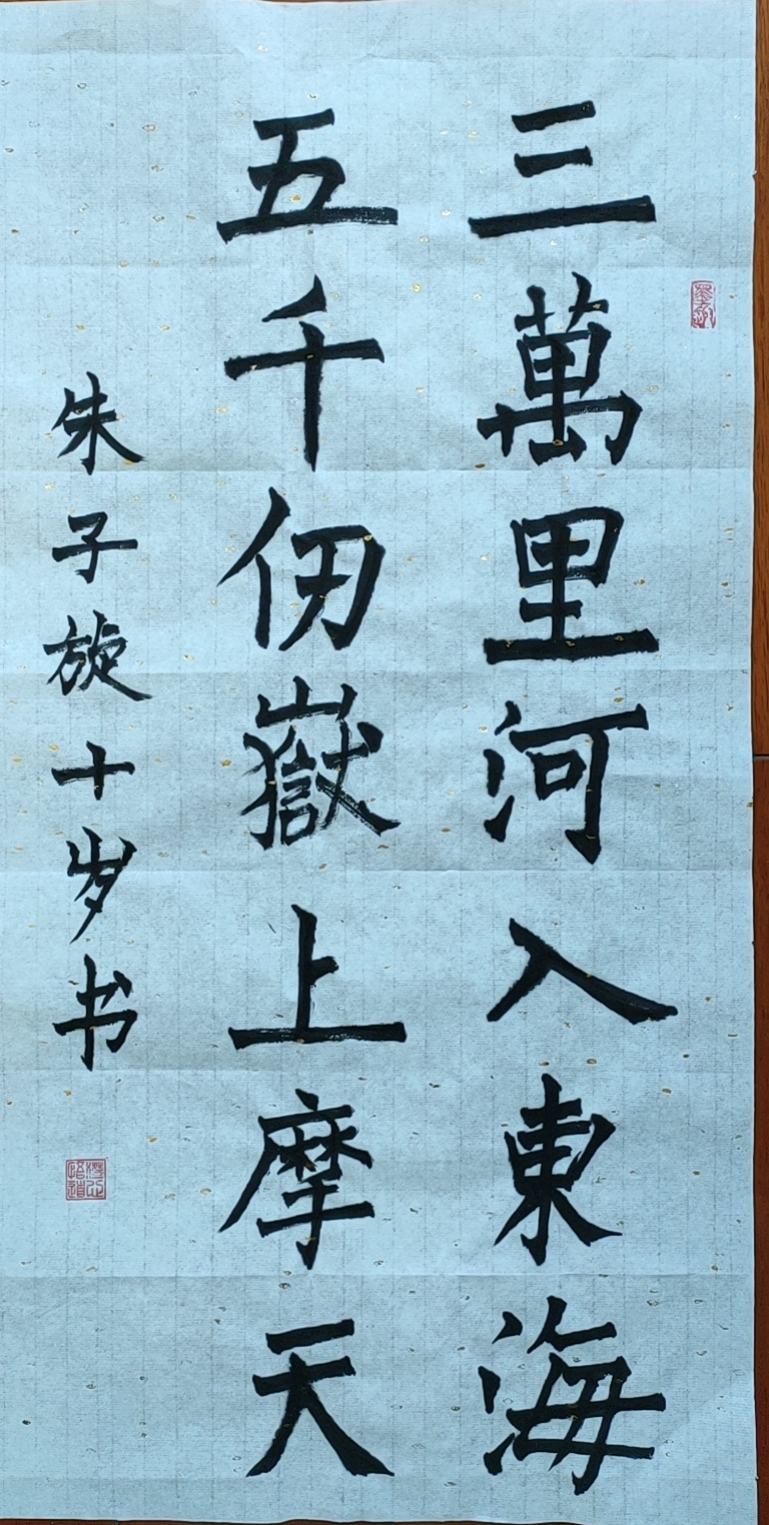 三萬里河入東海
五千仞嶽上摩天
朱子旋十岁书